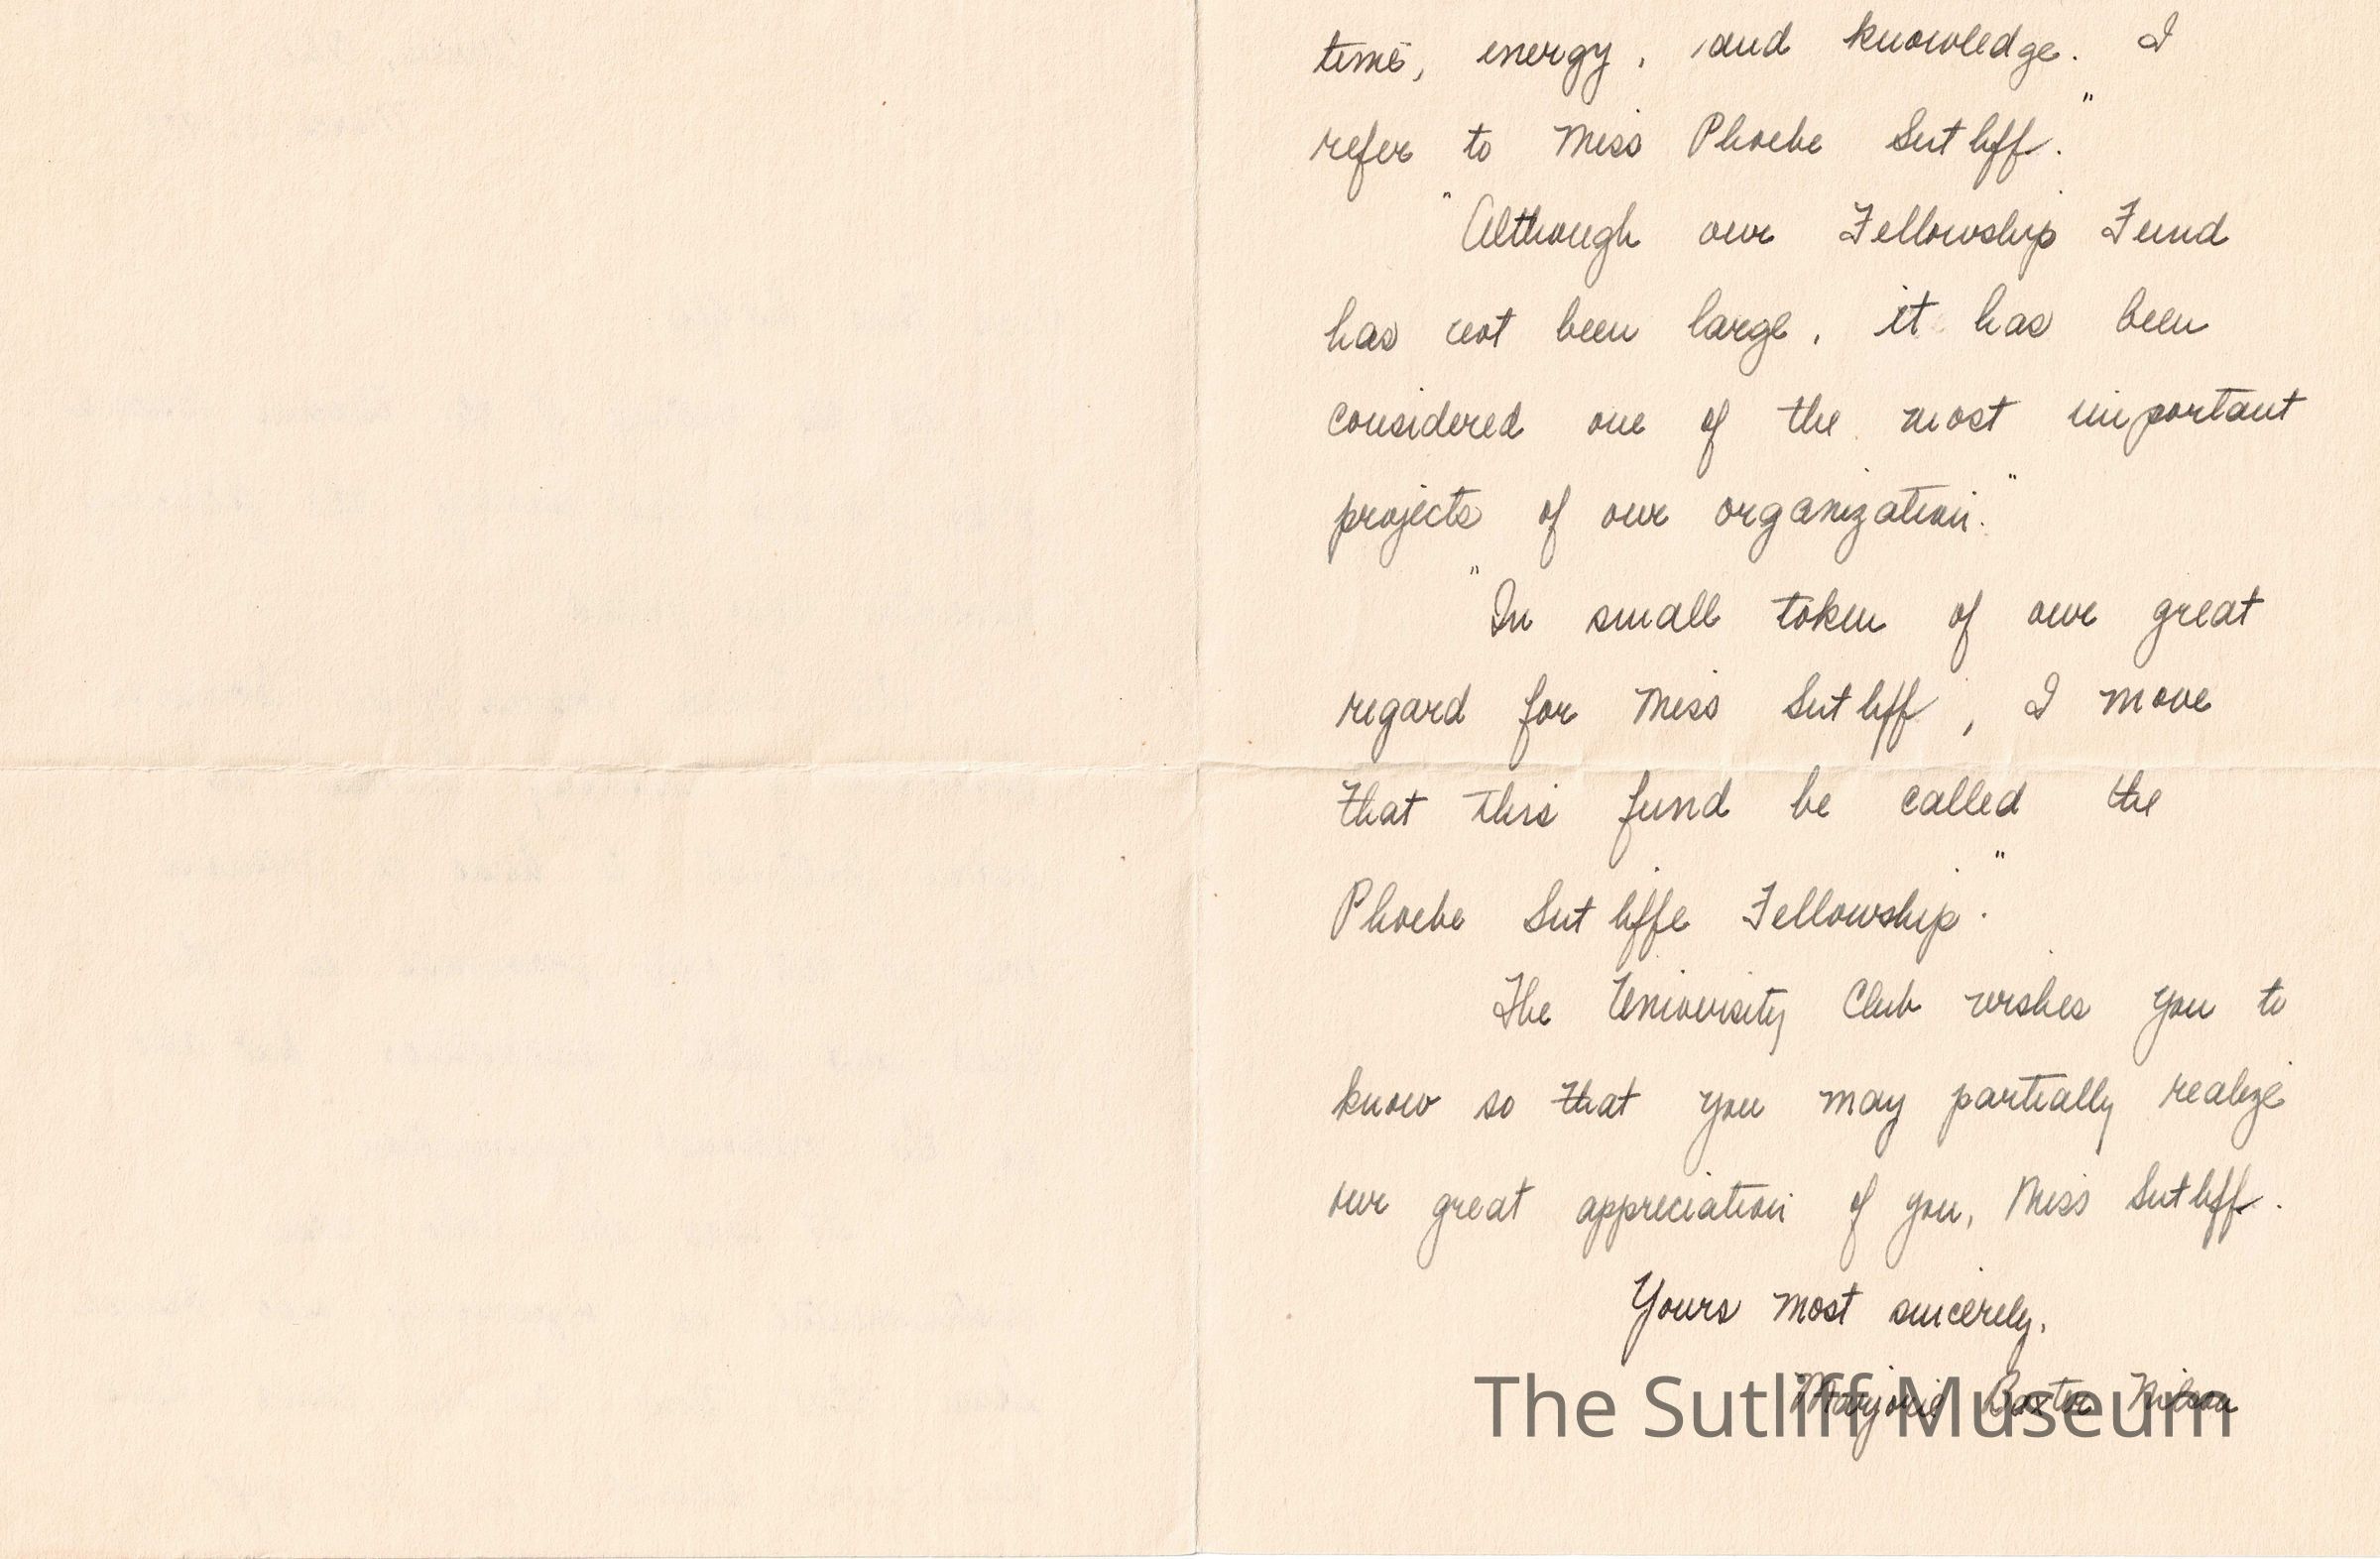 time, energy, and knowledge. I
refer to Miss Phoebe Sutliff."
"Although our Fellowship Fund
has not been large, it has been
considered one of the most important
projects of our organization."
"In small token of our great
regard for Miss Sutliff, I move
that this fund be called the
Phoebe Sutliffe Fellowship."
The University Club wishes you to
know so that you may partially realize
our great appreciation of you, Miss Sutliff.
Yours most sincerely,
Marjorie Baxter
The Sutliff Museum